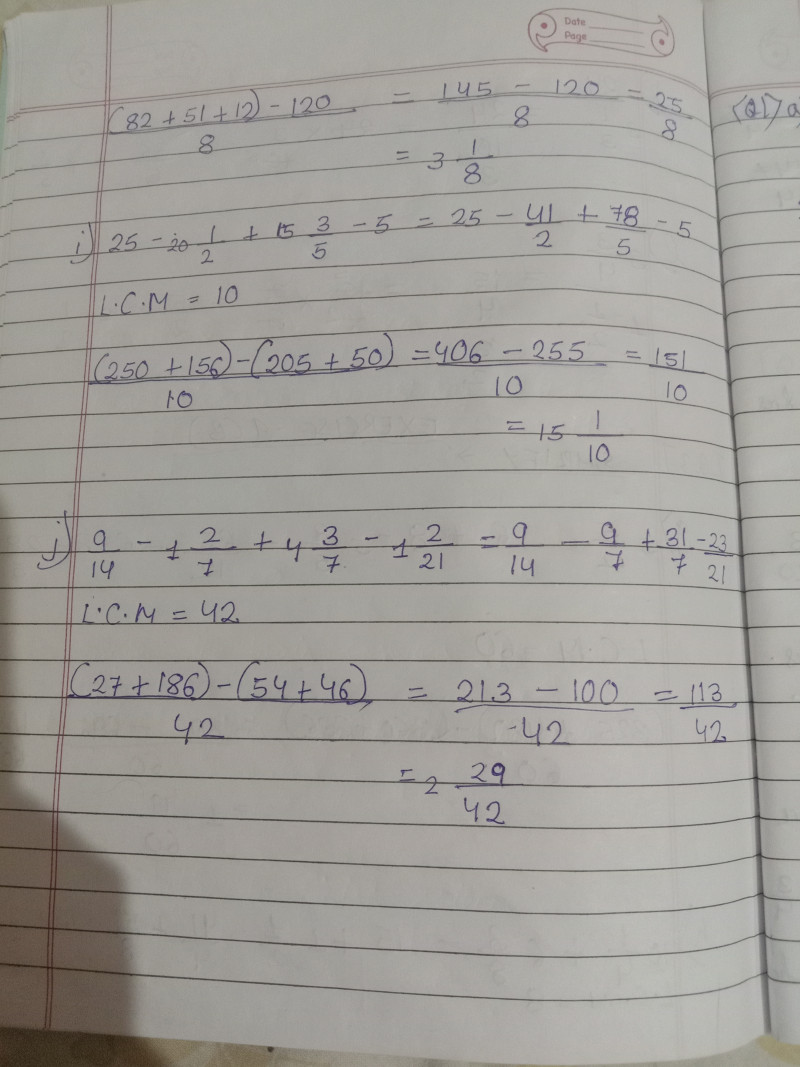 Date
Page
(82 + 51 + 12) - 120 / 8 = 145 - 120 / 8 = 25/8
= 3 1/8
i) 25 - 20 1/2 + 15 3/5 - 5 = 25 - 41/2 + 78/5 - 5
L.C.M = 10
(250 + 156) - (205 + 50) / 10 = 406 - 255 / 10 = 151/10
= 15 1/10
j) 9/14 - 1 2/7 + 4 3/7 - 1 2/21 = 9/14 - 9/7 + 31/7 - 23/21
L.C.M = 42
(27 + 186) - (54 + 46) / 42 = 213 - 100 / 42 = 113/42
= 2 29/42
(Q1) a